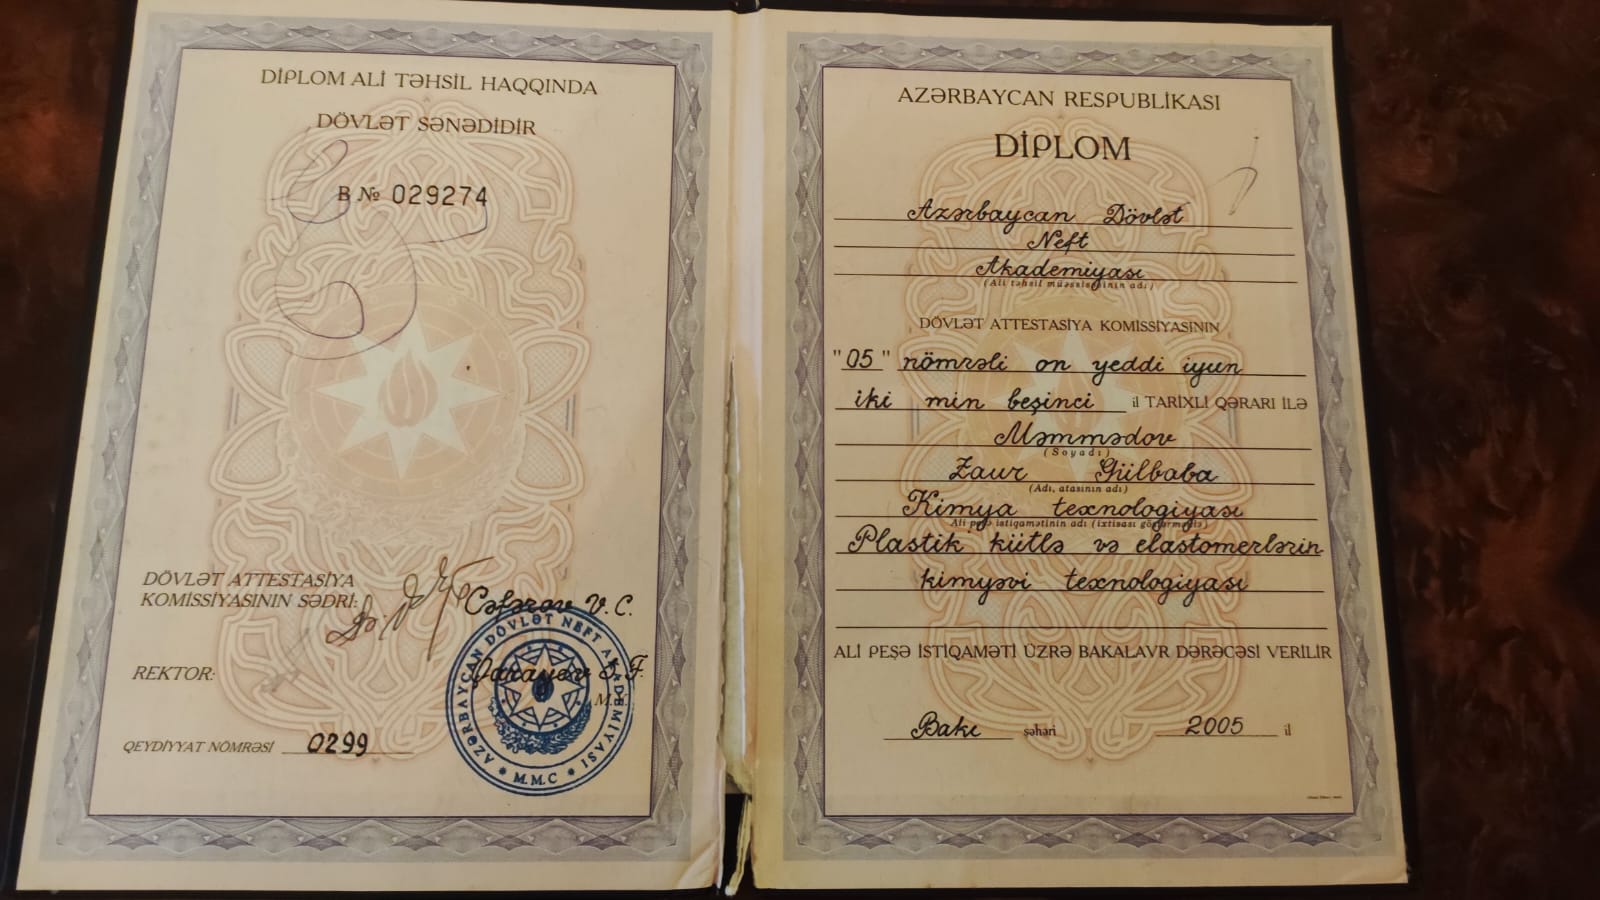 DİPLOM ALİ TƏHSİL HAQQINDA
DÖVLƏT SƏNƏDİDİR
B № 029274
DÖVLƏT ATTESTASİYA
KOMISSİYASININ SƏDRİ:
Cəfərov V.C.
REKTOR:
Qarayev S.F.
M.Y.
QEYDİYYAT NÖMRƏSİ 0299
AZƏRBAYCAN DÖVLƏT NEFT AKADEMİYASI
* M.M.C *
AZƏRBAYCAN RESPUBLİKASI
DİPLOM
Azərbaycan Dövlət
Neft
Akademiyası
(Ali təhsil müəssisəsinin adı)
DÖVLƏT ATTESTASİYA KOMISSİYASININ
"05" nömrəli on yeddi iyun
iki min beşinci il TARİXLİ QƏRARI İLƏ
Məmmədov
(Soyadı)
Zaur Gülbaba
(Adı, atasının adı)
Kimya texnologiyası
Ali peşə istiqamətinin adı (ixtisası göstərməklə)
Plastik kütlə və elastomerlərin
kimyəvi texnologiyası
ALİ PEŞƏ İSTİQAMƏTİ ÜZRƏ BAKALAVR DƏRƏCƏSİ VERİLİR
Bakı şəhəri 2005 il